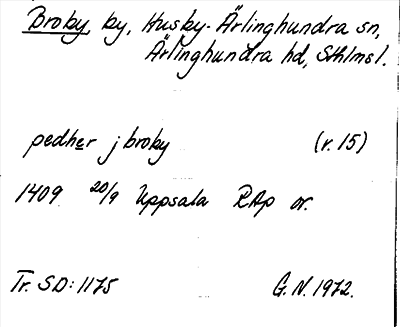 Broby, by, Husby-Ärlinghundra sn,
Ärlinghundra hd, Sthlmsl.
pedher j broby (r. 15)
1409 20/9 Uppsala RAp or.
Tr. SD: 1175 G.N. 1972.